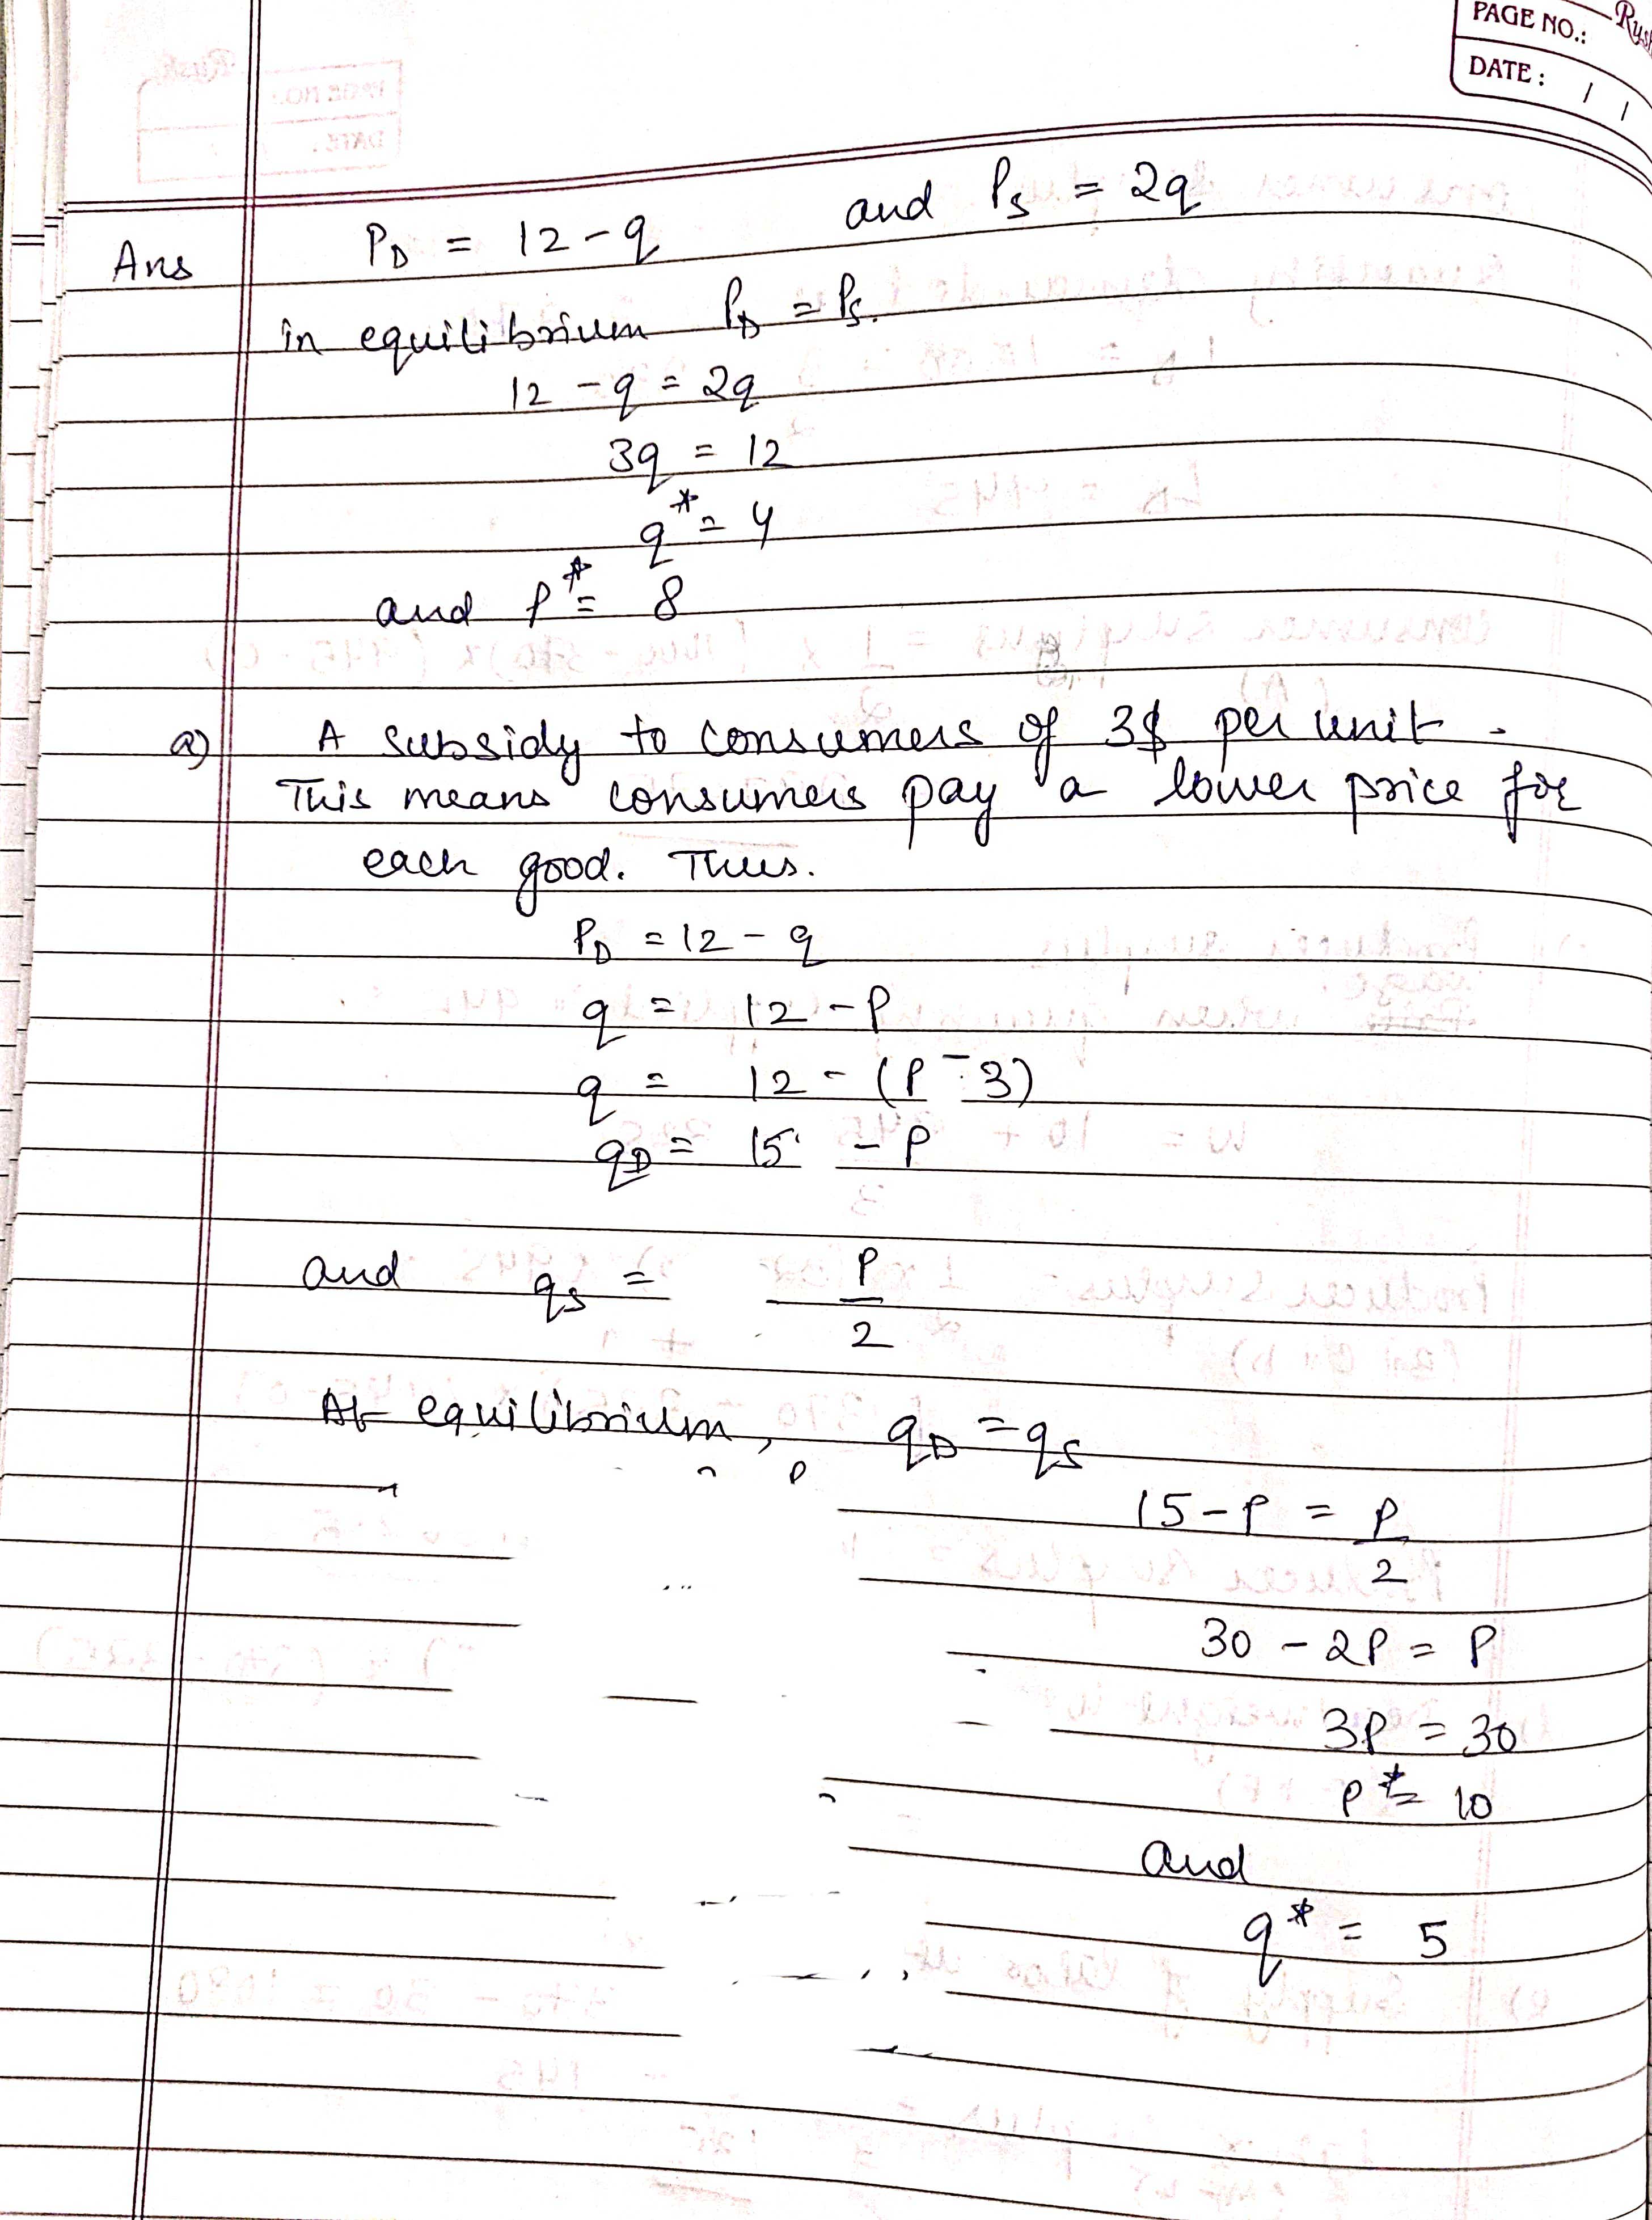 PAGE NO.:
DATE: / /
Ans P_D = 12 - q and P_S = 2q
in equilibrium P_D = P_S.
12 - q = 2q
3q = 12
q* = 4
and P* = 8
a) A subsidy to consumers of 3$ per unit.
This means consumers pay a lower price for
each good. Thus.
P_D = 12 - q
q = 12 - P
q = 12 - (P - 3)
q_D = 15 - P
and q_S = P/2
At equilibrium, q_D = q_S
15 - P = P/2
30 - 2P = P
3P = 30
P* = 10
and
q* = 5